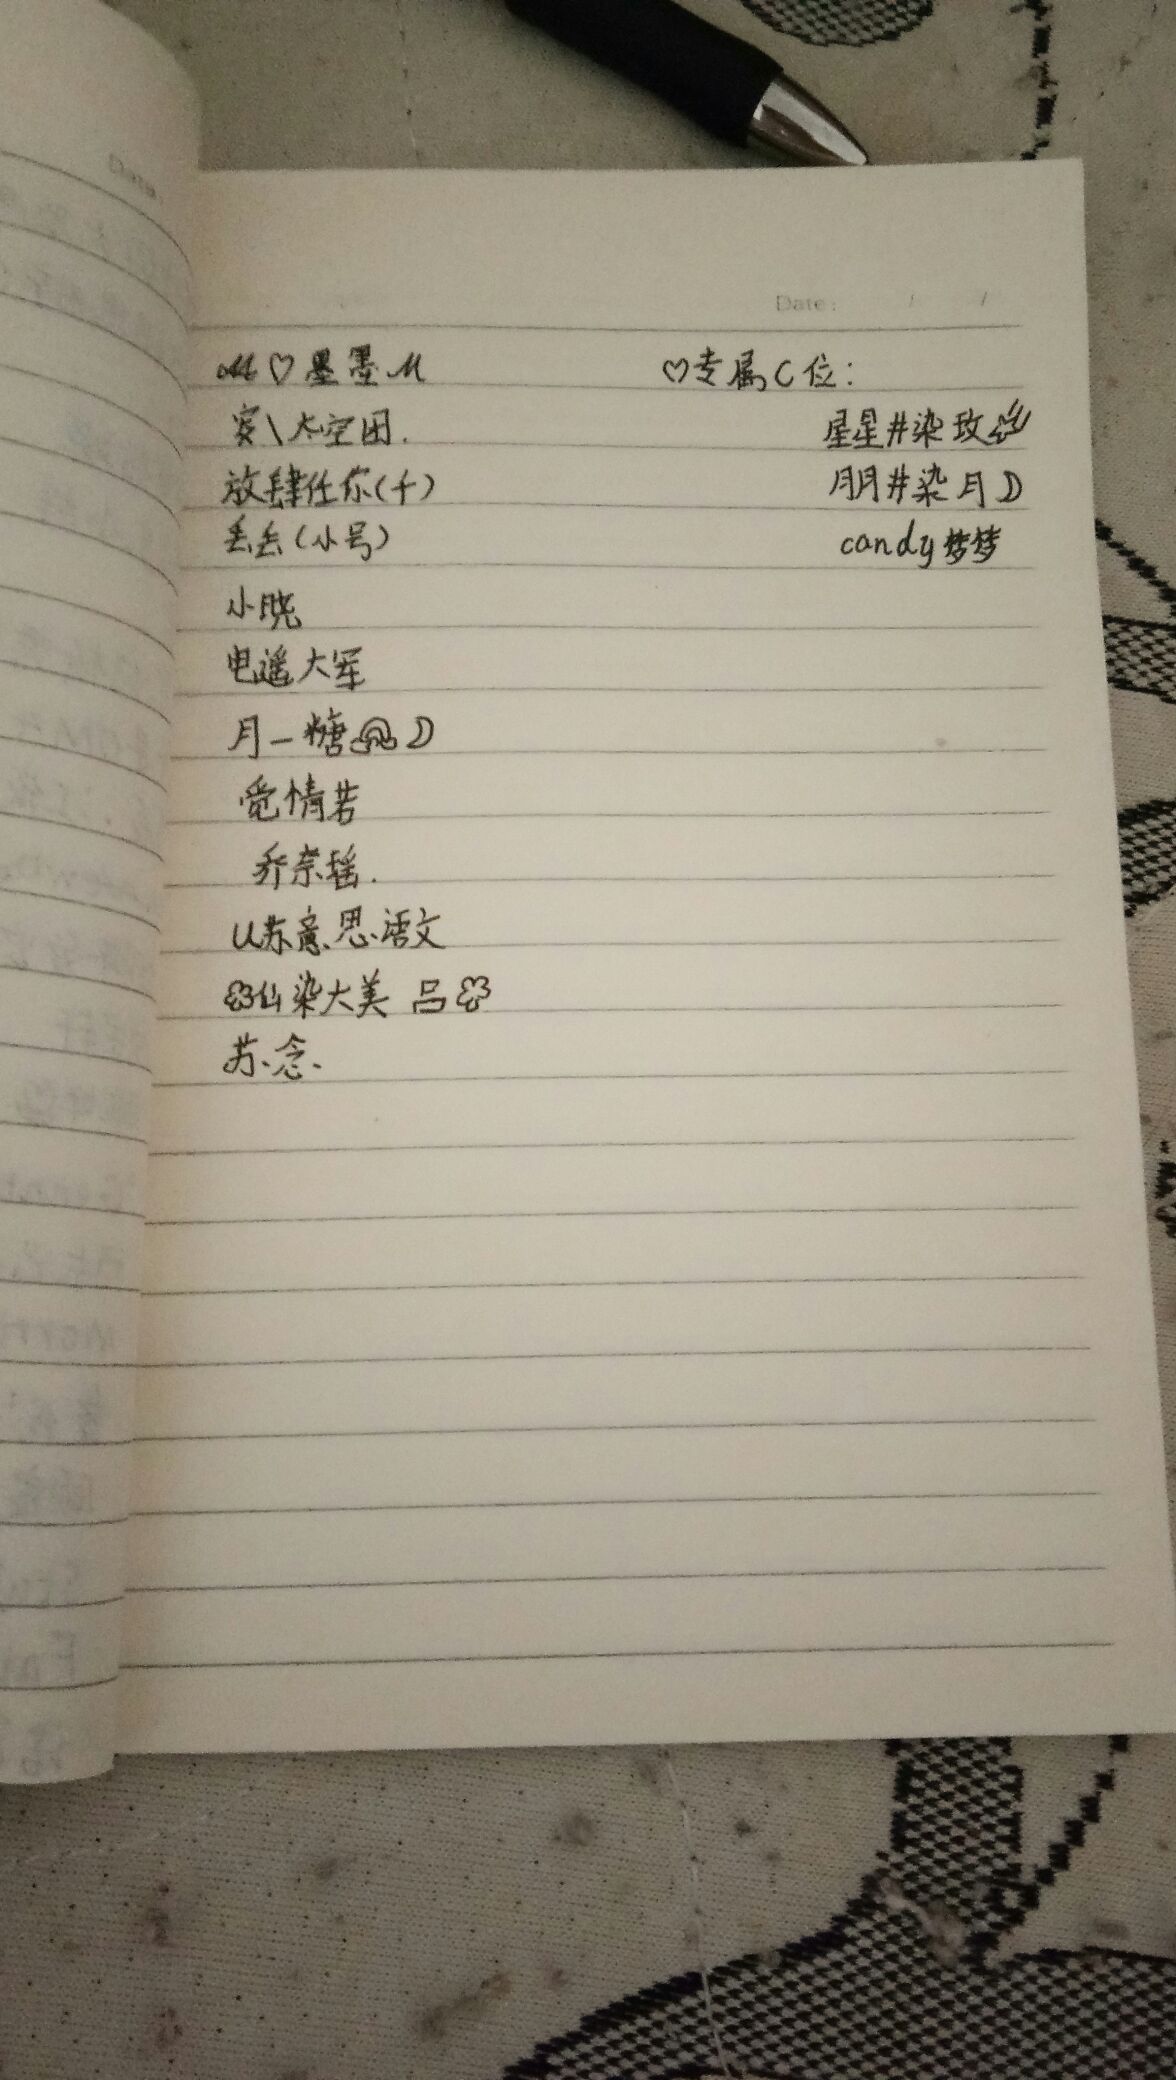 Date: / /
M♡墨墨M
♡专属C位:
太空团.
星星#染玫
放肆任你(千)
朋月#染月
丢丢(小号)
candy梦梦
小晓
电遥大军
月一糖
觉情若
乔奈瑶.
以苏意思语文
仙染大美 吕
苏念.